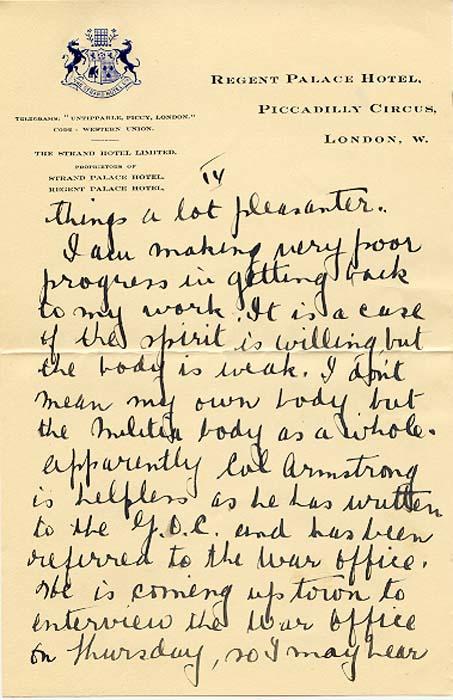 REGENT PALACE HOTEL,
PICCADILLY CIRCUS,
LONDON, W.
THE STRAND HOTEL LTD
TELEGRAMS, "UNTIPPABLE, PICCY, LONDON."
CODE: WESTERN UNION.
THE STRAND HOTEL LIMITED.
PROPRIETORS OF
STRAND PALACE HOTEL.
REGENT PALACE HOTEL.
IV
things a lot pleasanter.
I am making very poor
progress in getting back
to my work. It is a case
of the spirit is willing but
the body is weak. I don't
mean my own body but
the Militia body as a whole.
Apparently Col Armstrong
is helpless as he has written
to the G.O.C. and has been
referred to the War Office.
He is coming up town to
interview the War Office
on Thursday, so I may hear